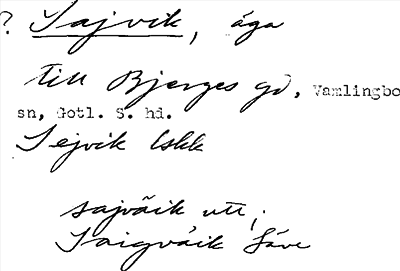 ? Sajvik, äga
till Bjerges gd, Vamlingbo
sn, Gotl. S. hd.
Sejvik Lskk
sajväik utt.;
Saigväik Säve